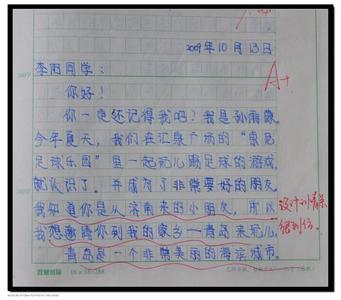 2009年10月13日
A+
李阳同学：
你好！
你一定还记得我吗？我是孙雨薇，
今年夏天，我们在汇泉广场的“索尼
足球乐园”里一起玩儿踢足球的游戏，
就认识了。并成为了非常要好的朋友。
我知道你是从济南来的小朋友，所以
我想邀请你到我的家乡——青岛来玩儿。
青岛是一个非常美丽的海滨城市。
设计的情景